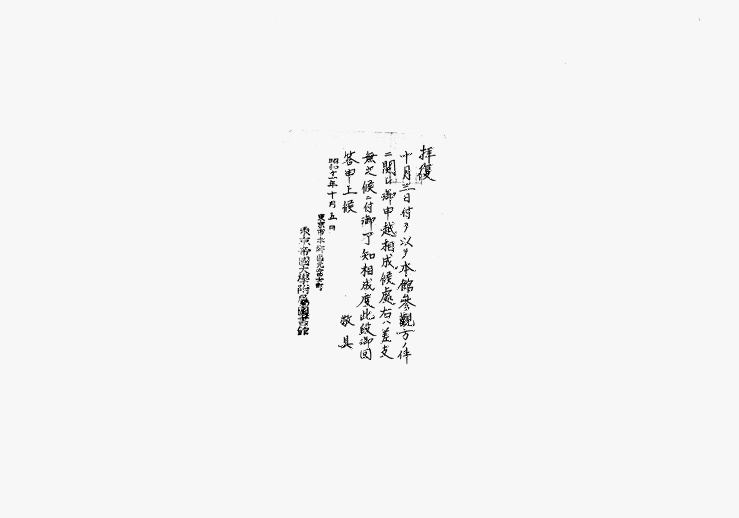 拝復
十月三日付ヲ以テ本館参観方ノ件
ニ関シ御申越相成候處右ハ差支
無之候ニ付御了知相成度此段御回
答申上候
敬具
昭和十一年十月五日
東京市本郷区元富士町
東京帝國大學附属圖書館